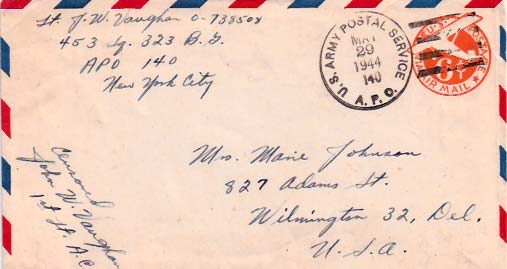 Lt. J. W. Vaughan O-738508
453 Sq. 323 B.G.
APO 140
New York City
U.S. ARMY POSTAL SERVICE
MAY
29
1944
140
A.P.O.
6¢
VIA AIR MAIL
Mrs. Marie Johnson
827 Adams St.
Wilmington 32, Del.
U.S.A.
Censored
John W. Vaughan
1st Lt. A.C.